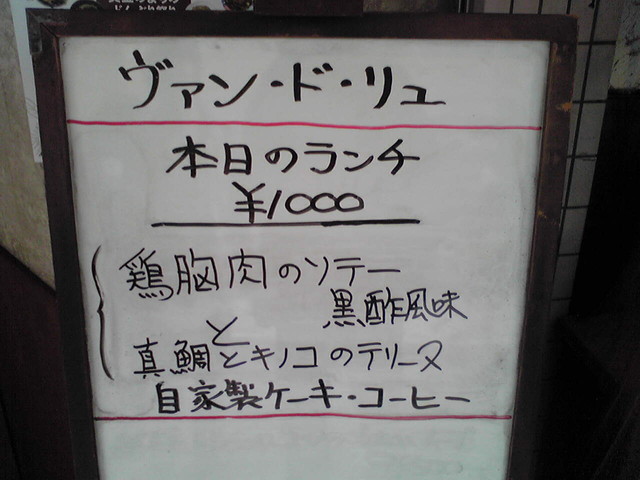 ヴァン・ド・リュ
本日のランチ
¥1000
鶏胸肉のソテー
黒酢風味
と
真鯛とキノコのテリーヌ
自家製ケーキ・コーヒー